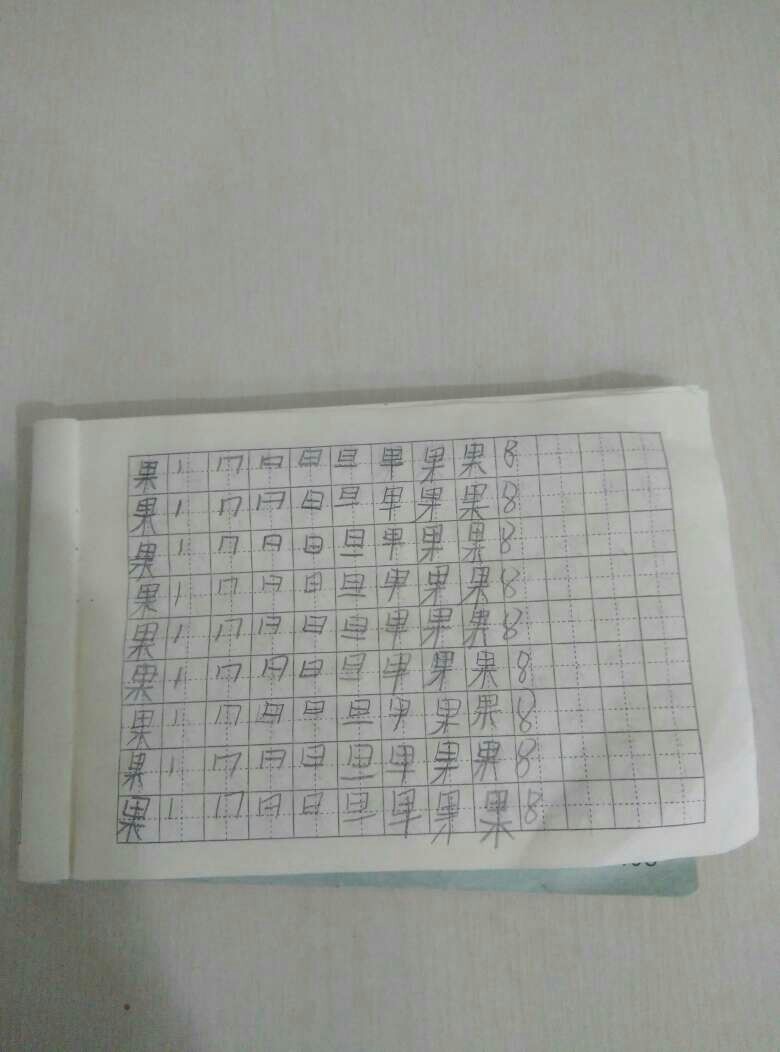 果 丨 冂 日 日 旦 甲 果 果 8
果 丨 冂 日 日 旦 甲 果 果 8
果 丨 冂 日 日 旦 甲 果 果 8
果 丨 冂 日 日 旦 甲 果 果 8
果 丨 冂 日 日 旦 甲 果 果 8
果 丨 冂 日 日 旦 甲 果 果 8
果 丨 冂 日 日 旦 甲 果 果 8
果 丨 冂 日 日 旦 甲 果 果 8
果 丨 冂 日 日 旦 甲 果 果 8